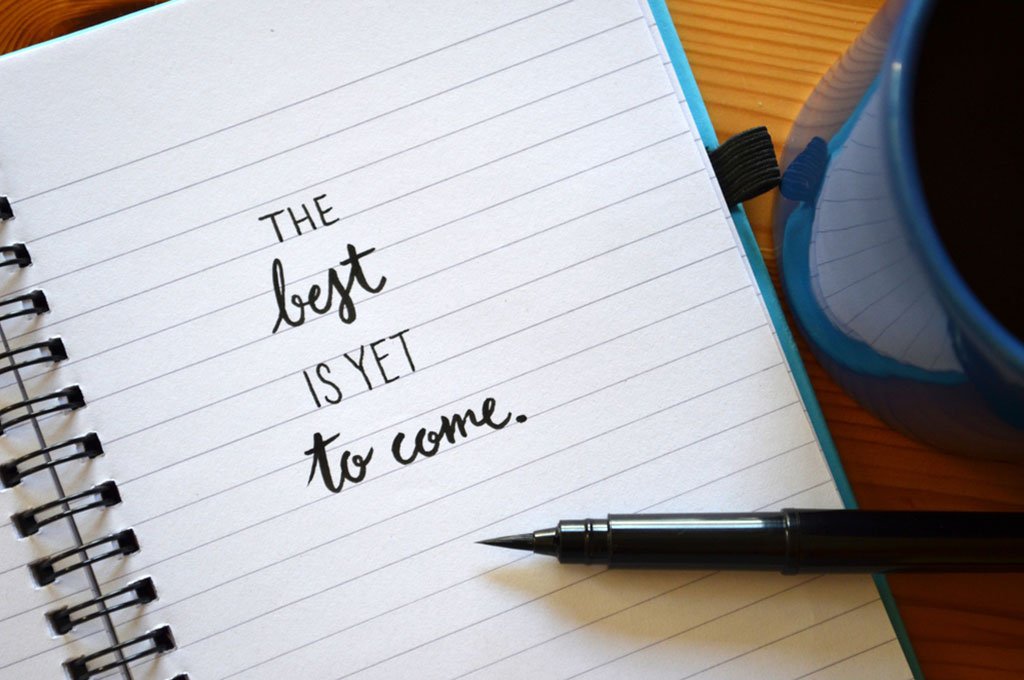 THE
best
IS YET
to come.